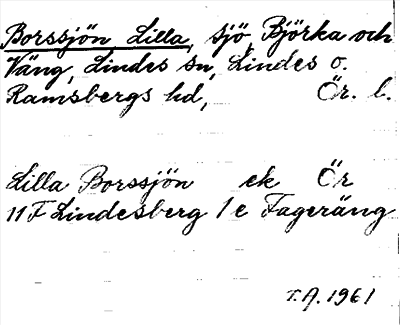 Borssjön Lilla, sjö, Björka och
Väng, Lindes sn, Lindes o.
Ramsbergs hd, Ör. l.
Lilla Borssjön ek Ör
11F Lindesberg 1e Fageräng
T.A. 1961